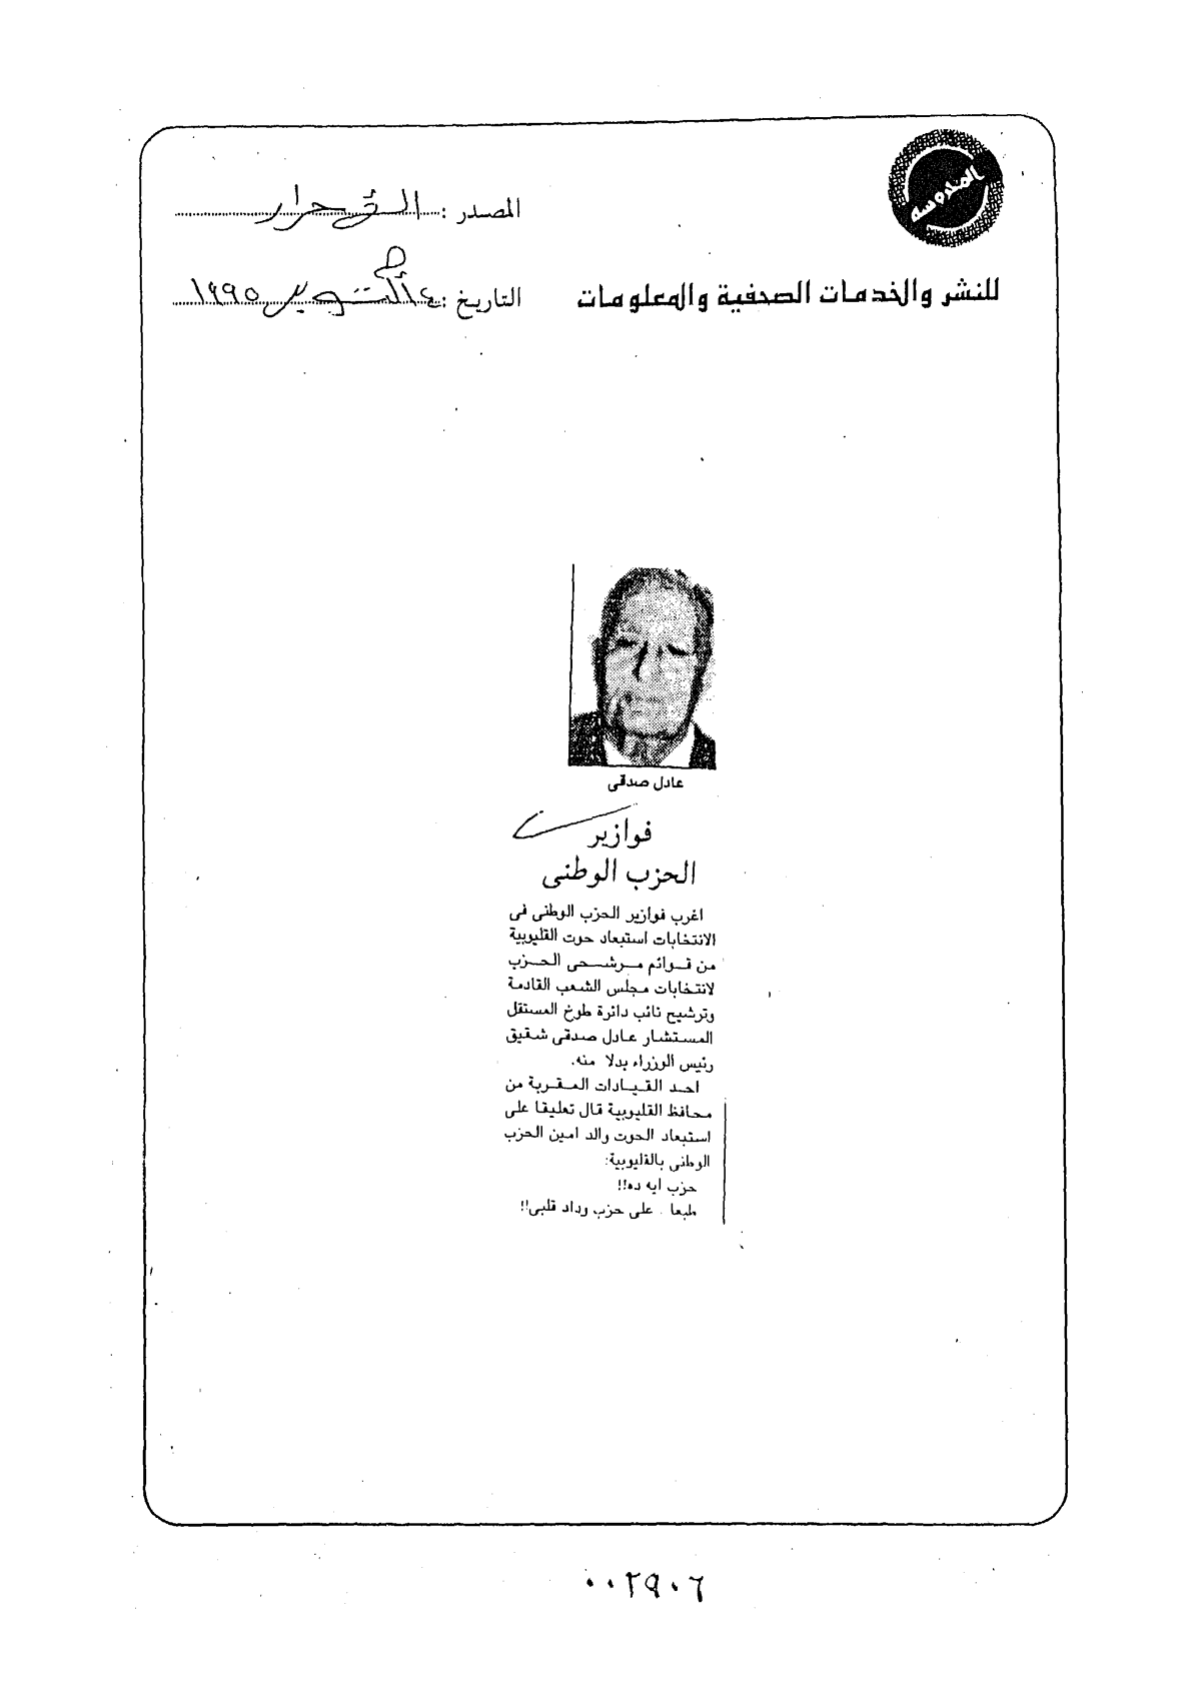 المحروسة
المصدر : الأحرار
للنشر والخدمات الصحفية والمعلومات
التاريخ : أكتوبر ١٩٩٥
عادل صدقى
فوازير
الحزب الوطنى
اغرب فوازير الحزب الوطنى فى
الانتخابات استبعاد حوت القليوبية
من قوائم مرشحى الحزب
لانتخابات مجلس الشعب القادمة
وترشيح نائب دائرة طوخ المستقل
المستشار عادل صدقى شقيق
رئيس الوزراء بدلا منه.
احد القيادات المقربة من
محافظ القليوبية قال تعليقا على
استبعاد الحوت والد امين الحزب
الوطنى بالقليوبية:
حزب ايه ده!!
طبعا . على حزب وداد قلبى!!
٠٠٢٩٠٦